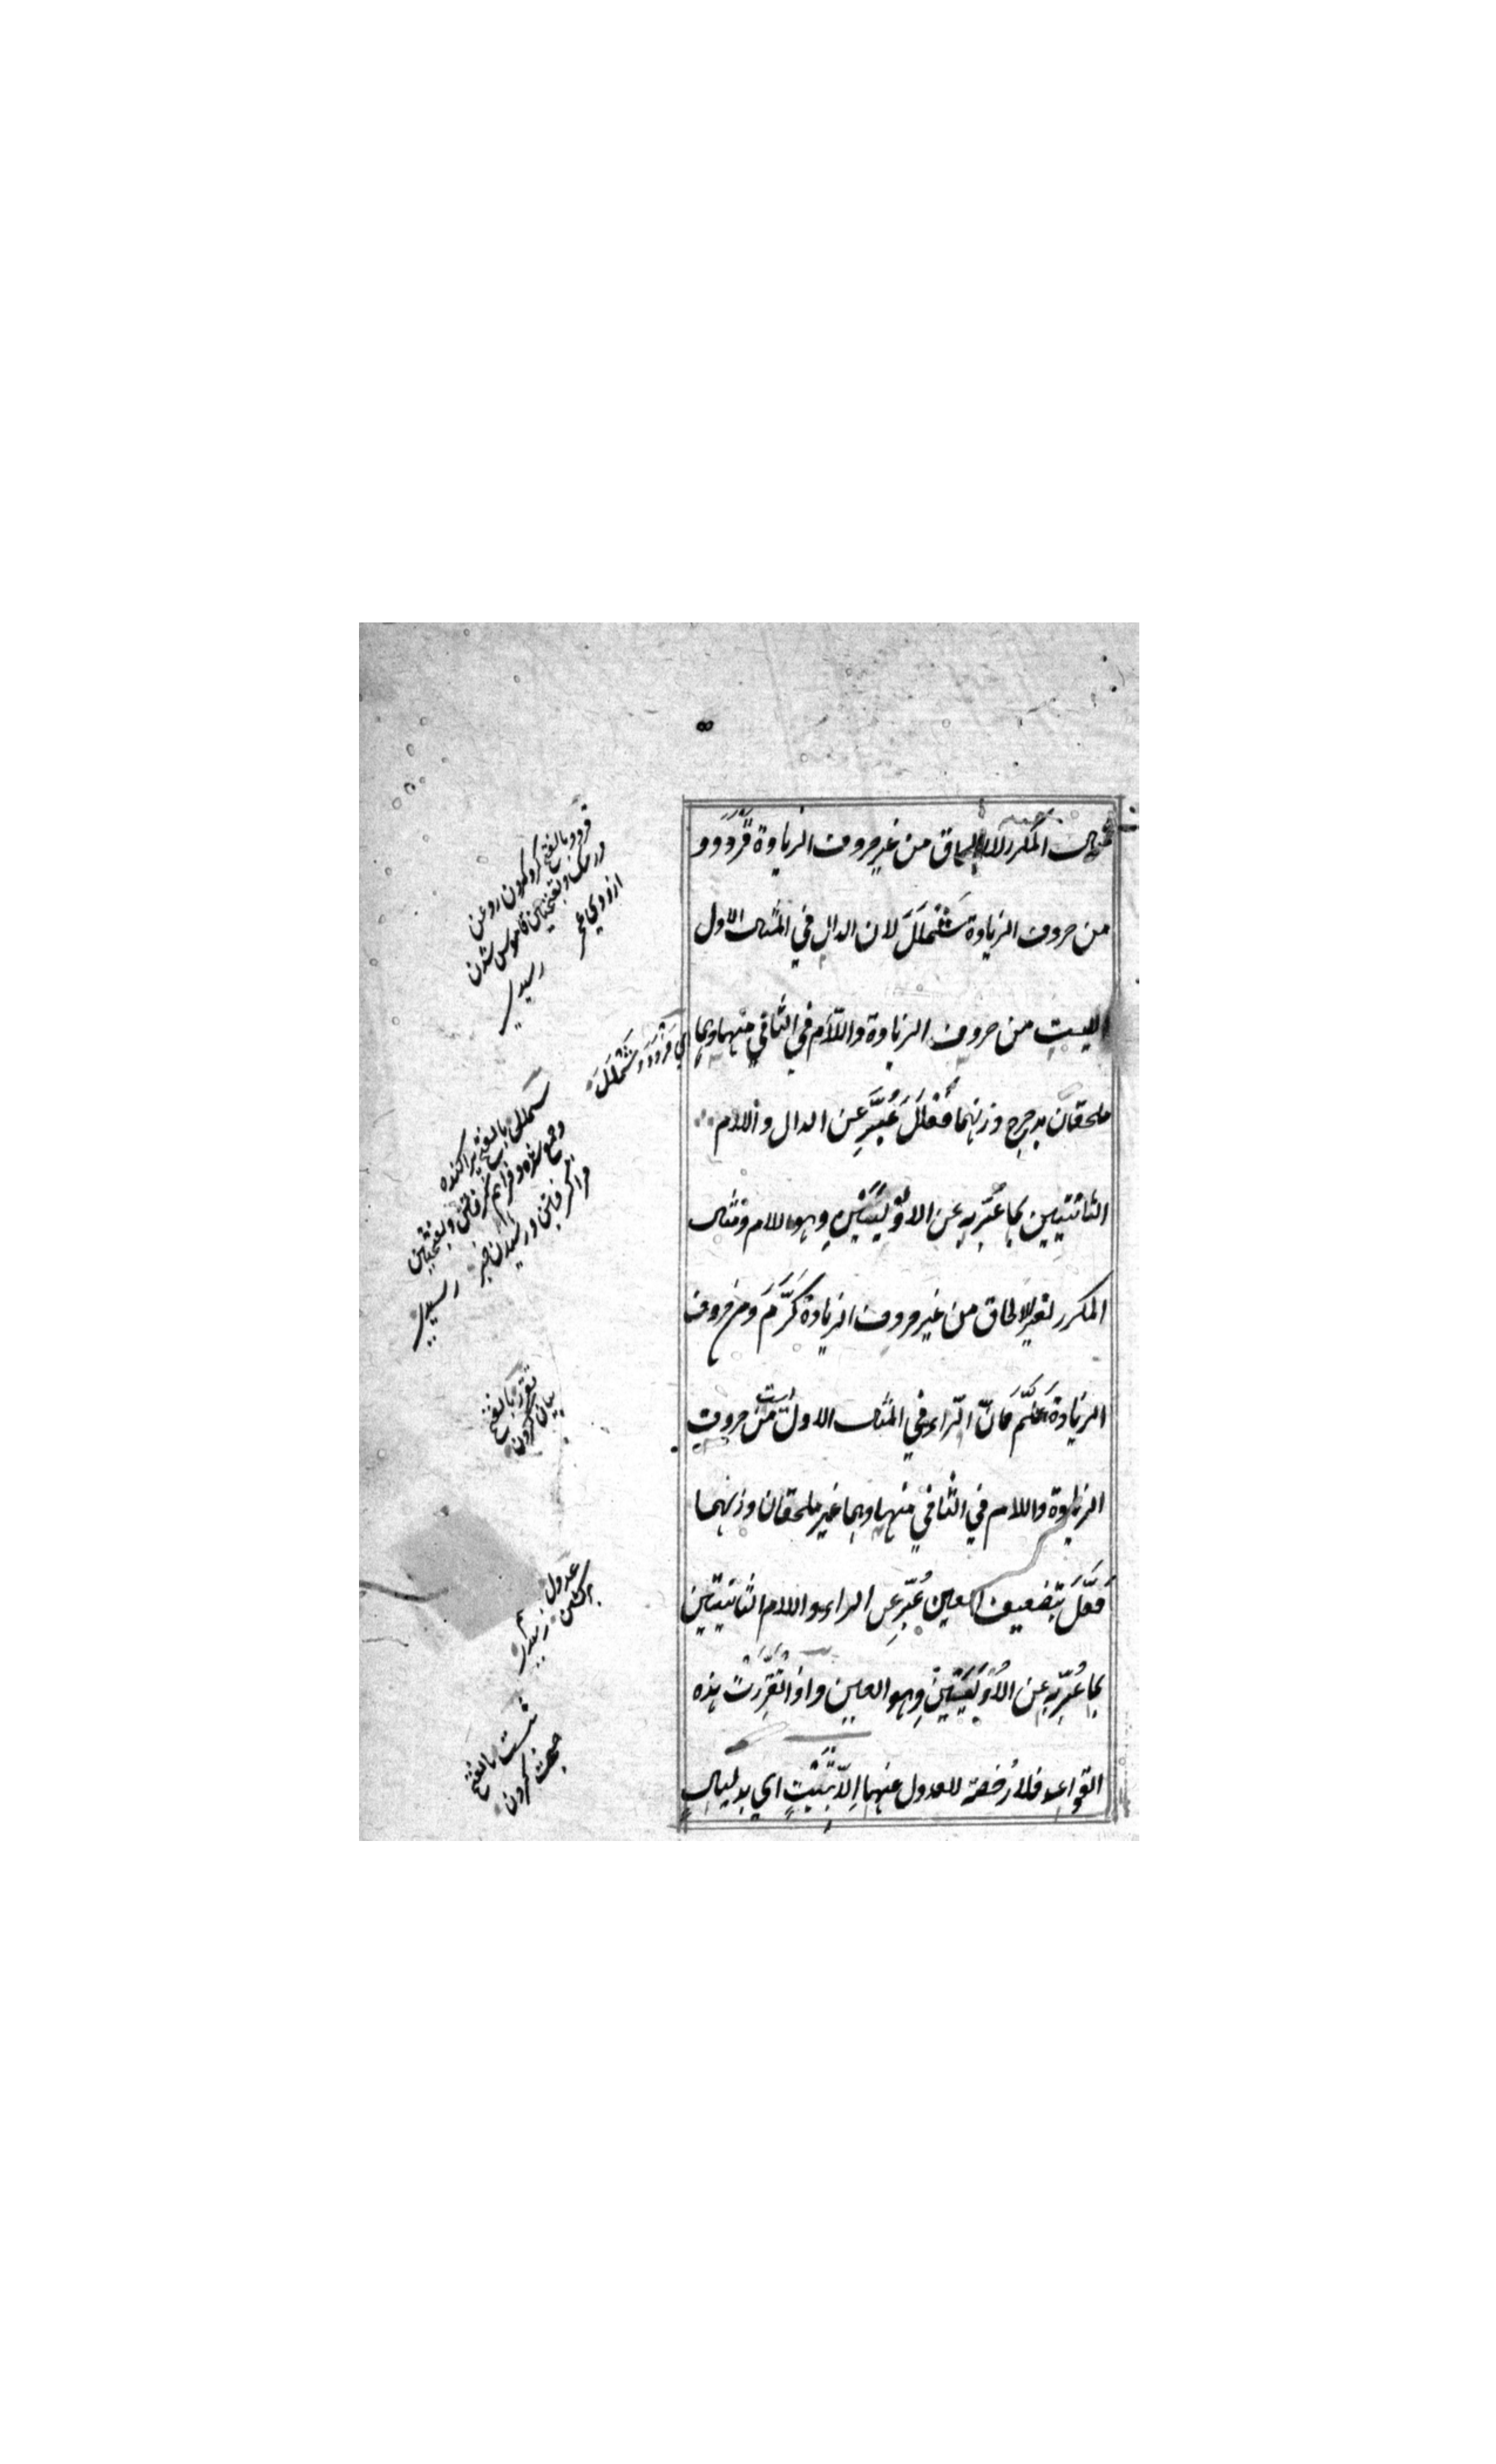 فمثال المكرر للالحاق من غير حروف الزيادة قَرْدَدَ و
من حروف الزيادة شَمْلَلَ لان الدال في المثال الاول
ليست من حروف الزيادة واللام في الثاني منها وهما
اي قَرْدَدَ و شَمْلَلَ
ملحقان بدحرج وزنهما فَعْلَلَ عُبِّرَ عن الدال واللام
الثانيتين بما عُبِّرَ به عن الاُوْلَيَيْنِ وهو اللام ومثال
المكرر لغير الالحاق من غير حروف الزيادة كَرَّمَ ومن حروف
الزيادة عَلَّمَ فانّ الرّاء في المثال الاول ليست من حروف
الزيادة واللام في الثاني منها وهما غير ملحقان وزنهما
فَعَّلَ بتضعيف العين عُبِّرَ عن الراء واللام الثانيتين
بما عُبِّرَ به عن الاُوْلَيَيْنِ وهو العين واذا تَقَرَّرَتْ هذه
القواعد فلا رُخصة للعدول عنها اِلّا بِثَبَتٍ اي بدليلٍ
قردد بالفتح
شملل بالفتح
فراهم گرفتن و بفتحتين
تقرر بالفتح
بيان كردن
عدول
برگشتن
ثبت بالفتح
حجت كردن